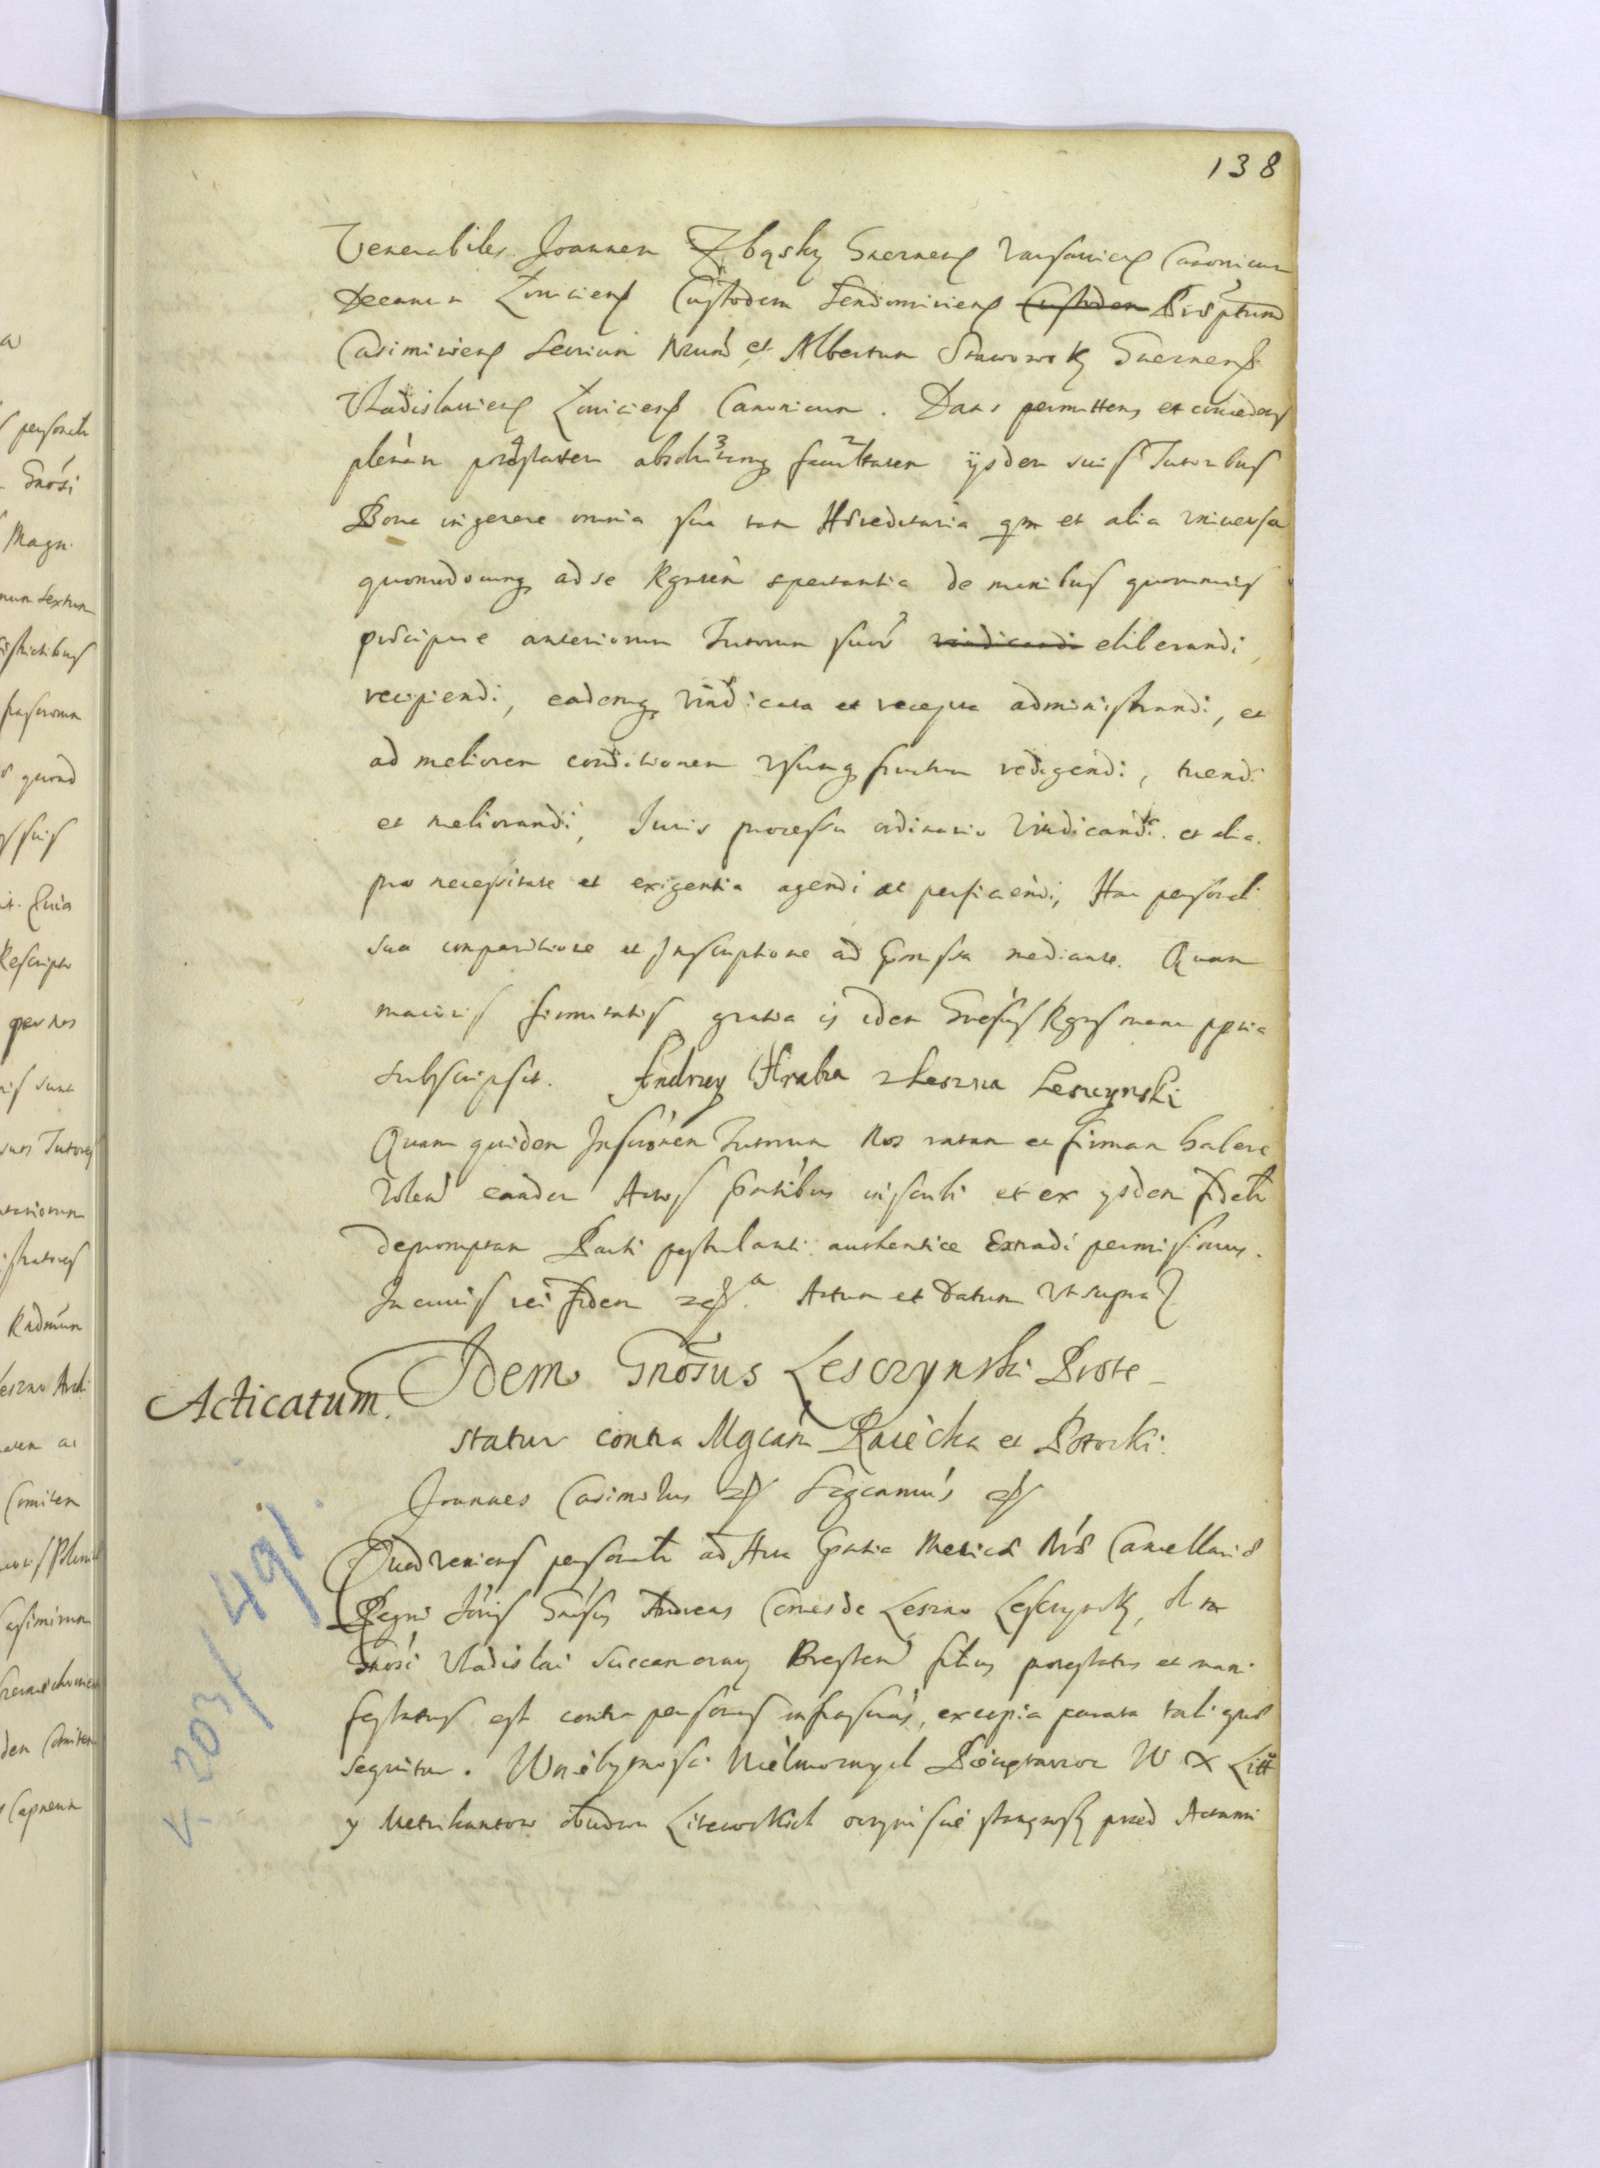 138
Venerabiles Joannem Zbąsky Gnesnens Varsaviens Canonicum
Decanum Loviciens Custodem Sendomiriens Custodem Præptum
Casimiriens Secrium Nrum et Albertum Stawowsky Gnesnens
Vladislaviens Loviciens Canonicum. Dans permittens et concedens
plenàm potestatem absolutamq facultatem ijsdem suis Tutoribus
Bona ingerere omnia sua tam Hæreditaria qm et alia universa
quomodocunq ad se Rgntem spectantia de manibus quorumvis
præcipue anteriorum Tutorum suor vindicandi eliberandi,
recipiendi, eademq vindicata et recepta administrandi, et
ad meliorem conditionem usumq fructum redigendi, tuendi
et meliorandi, Juris processu ordinario vindicandi et alia
pro necessitate et exigentia agendi ac perficiendi, Hac personali
sua comparitione et Inscriptione ad Prmssa mediante. Quam
maioris firmitatis gratia is idem Gnesus Rgns manu ppria
subscripsit. Andrzey Hraba z Leszna Lesczynski
Quam quidem Inscriònem Tutorum Nos ratam et firmam habere
volen eandem Actis Prntibus inscribi et ex ysdem fideli
depromptam Parti postulanti authentice Extradi permisimus.
In cuius rei fidem etc. Actum et Datum Ut supra
Acticatum.
Idem Gnosus Lesczynski Prote-
statur contra Mgcam Pacècka et Potocki.
Joannes Casimirus etc Sigcamus etc
Quod veniens personalr ad Hæc Prntia Metices Nræ Cancellariæ
Regni Acta Gnosus Andreas Comes de Leszno Lesczynsky, olim
Gnosi Vladislai Succamerarij Bresten filius protestatus et mani
festatus est contra personas infrascrias, ex copia parata tali quæ
sequitur. W niebytnosci Wielmoznych Pieczętarzow W X Litt
y Metrikantow obudwu Litewskich oczywiscie stanąwszy przed Actami
k. 203/491.